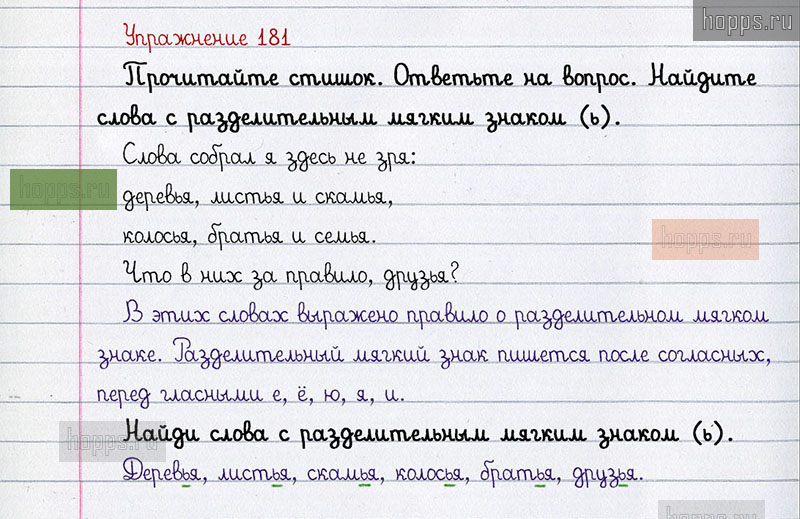 hopps.ru
Упражнение 181
Прочитайте стишок. Ответьте на вопрос. Найдите
слова с разделительным мягким знаком (ь).
Слова собрал я здесь не зря:
hopps.ru
деревья, листья и скамья,
колосья, братья и семья.
hopps.ru
Что в них за правило, друзья?
В этих словах выражено правило о разделительном мягком
знаке. Разделительный мягкий знак пишется после согласных,
перед гласными е, ё, ю, я, и.
Найди слова с разделительным мягким знаком (ь).
hopps.ru
Деревья, листья, скамья, колосья, братья, друзья.
hopps.ru